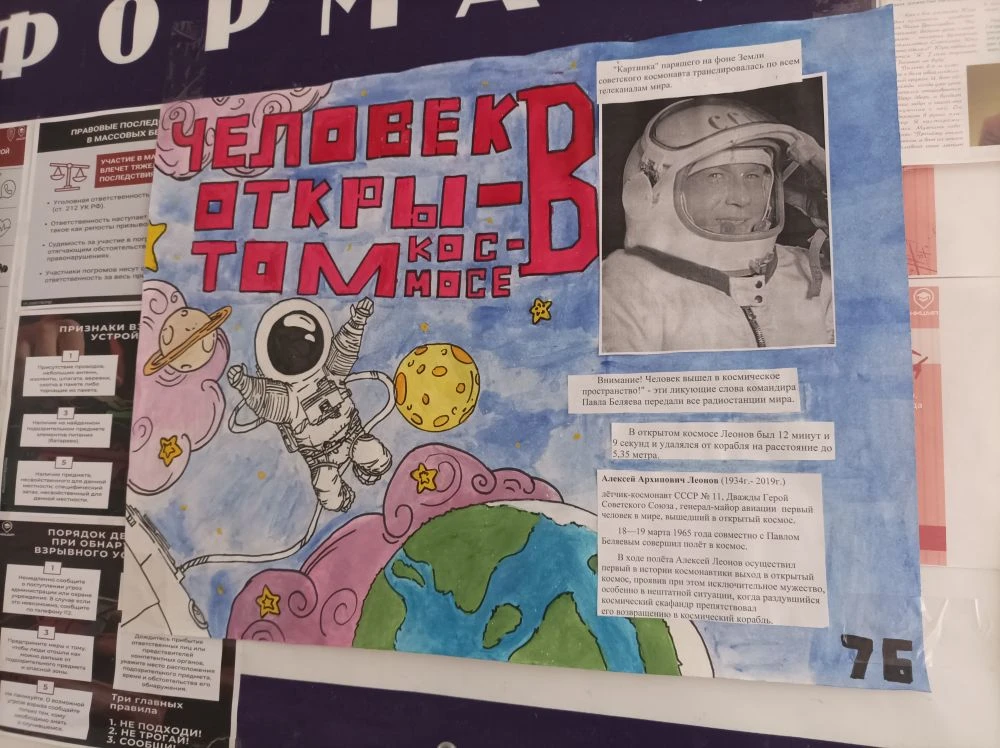 ФОРМА
ЧЕЛОВЕК В
ОТКРЫ-
ТОМ КОС-
МОСЕ
"Картинка" парящего на фоне Земли
советского космонавта транслировалась по всем
телеканалам мира.
Внимание! Человек вышел в космическое
пространство!" - эти ликующие слова командира
Павла Беляева передали все радиостанции мира.
В открытом космосе Леонов был 12 минут и
9 секунд и удалялся от корабля на расстояние до
5,35 метра.
Алексей Архипович Леонов (1934г.- 2019г.)
лётчик-космонавт СССР № 11, Дважды Герой
Советского Союза, генерал-майор авиации первый
человек в мире, вышедший в открытый космос.
18—19 марта 1965 года совместно с Павлом
Беляевым совершил полёт в космос.
В ходе полёта Алексей Леонов осуществил
первый в истории космонавтики выход в открытый
космос, проявив при этом исключительное мужество,
особенно в нештатной ситуации, когда раздувшийся
космический скафандр препятствовал
его возвращению в космический корабль.
7Б
ПРАВОВЫЕ ПОСЛЕД
В МАССОВЫХ БЕ
УЧАСТИЕ В МА
ВЛЕЧЕТ ТЯЖЕ
ПОСЛЕДСТВИЯ
Уголовная ответственность
(ст. 212 УК РФ).
Ответственность наступает
такое как репосты призыво
Судимость за участие в пог
отягчающим обстоятельств
правонарушениях.
Участники погромов несут
ответственность за весь пр
ПРИЗНАКИ ВЗ
УСТРОЙ
1
Присутствие проводов,
небольших антенн,
изоленты, шпагата, веревки,
скотча в пакете либо
торчащие из пакета.
3
Наличие на найденном
подозрительном предмете
элементов питания
(батареек).
5
Наличие предмета,
несвойственного для данной
местности; специфический
запах, несвойственный для
данной местности.
ПОРЯДОК ДЕ
ПРИ ОБНАРУ
ВЗРЫВНОГО УС
1
Немедленно сообщите
о поступлении угроз
администрации или охране
учреждения. В случае если
это невозможно, сообщите
по телефону 112.
3
Предпримите меры к тому,
чтобы люди отошли как
можно дальше от
подозрительного предмета
и опасной зоны.
5
Не паникуйте. О возможной
угрозе взрыва сообщайте
только тем, кому
необходимо знать
о случившемся.
Дождитесь прибытия
ответственных лиц или
представителей
компетентных органов,
укажите место расположения
подозрительного предмета,
время и обстоятельства его
обнаружения.
Три главных
правила
1. НЕ ПОДХОДИ!
2. НЕ ТРОГАЙ!
3. СООБЩИ!